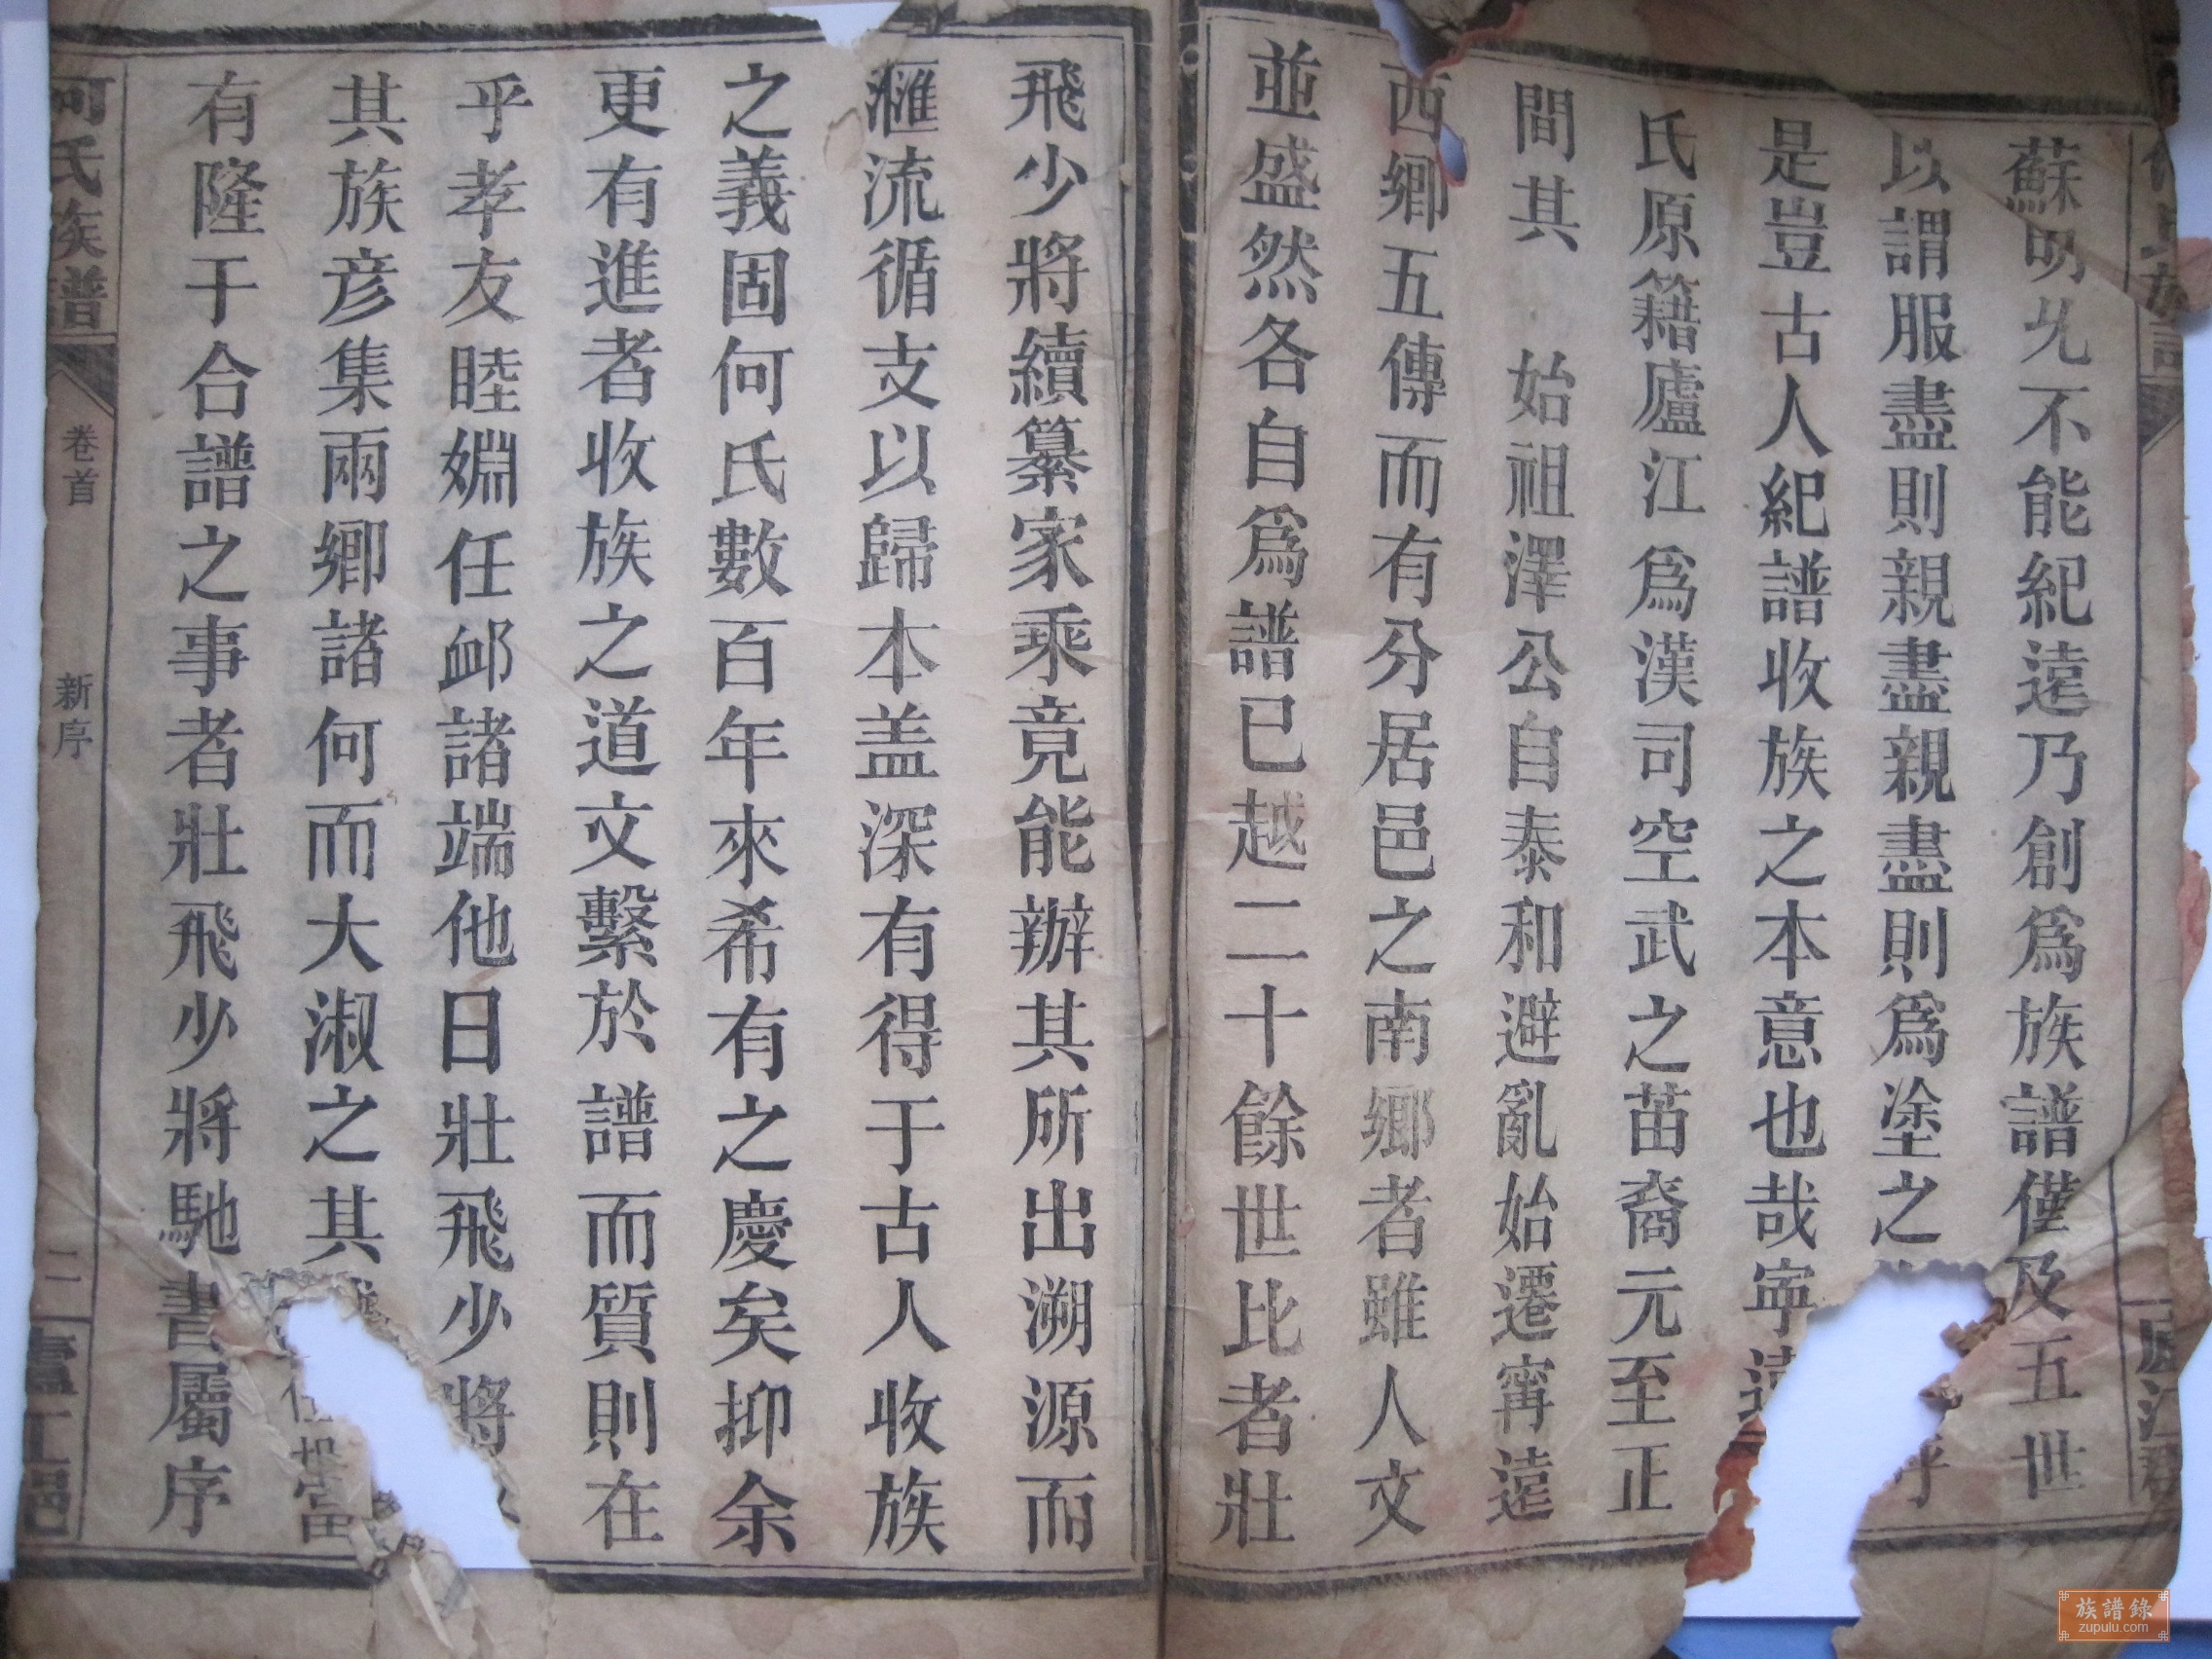 蘇明允不能紀遠乃創爲族譜僅及五世
以謂服盡則親盡親盡則爲塗之 呼
是豈古人紀譜收族之本意也哉寜遠
氏原籍廬江爲漢司空武之苗裔元至正
間其 始祖澤公自泰和避亂始遷寗遠
西鄉五傳而有分居邑之南鄉者雖人文
並盛然各自爲譜已越二十餘世比者壯
飛少將續纂家乘竟能辦其所出溯源而
滙流循支以歸本盖深有得于古人收族
之義固何氏數百年來希有之慶矣抑余
更有進者收族之道文繫於譜而質則在
乎孝友睦婣任䘏諸端他日壯飛少將
其族彦集兩鄉諸何而大淑之其 當
有隆于合譜之事者壯飛少將馳書屬序
何氏族譜
卷首
新序
二
廬江郡
族譜錄
zupulu.com